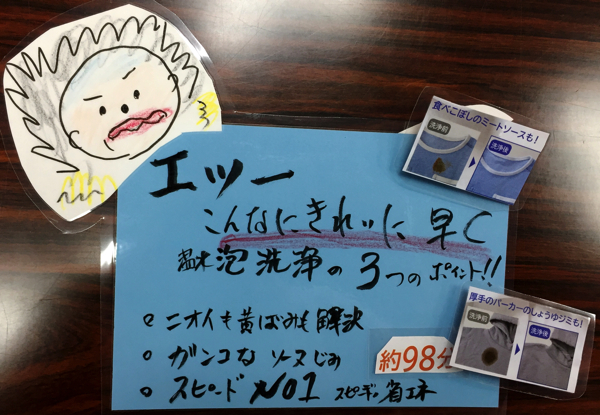 食べこぼしのミートソースも!
洗浄前
洗浄後
エッー
こんなにきれいに 早く
温水泡洗浄の3つのポイント!!
厚手のパーカーのしょうゆジミも!
洗浄前
洗浄後
ニオイも黄ばみも解決
ガンコなソースじみ
約98分
スピードNO1 スピーディ省エネ